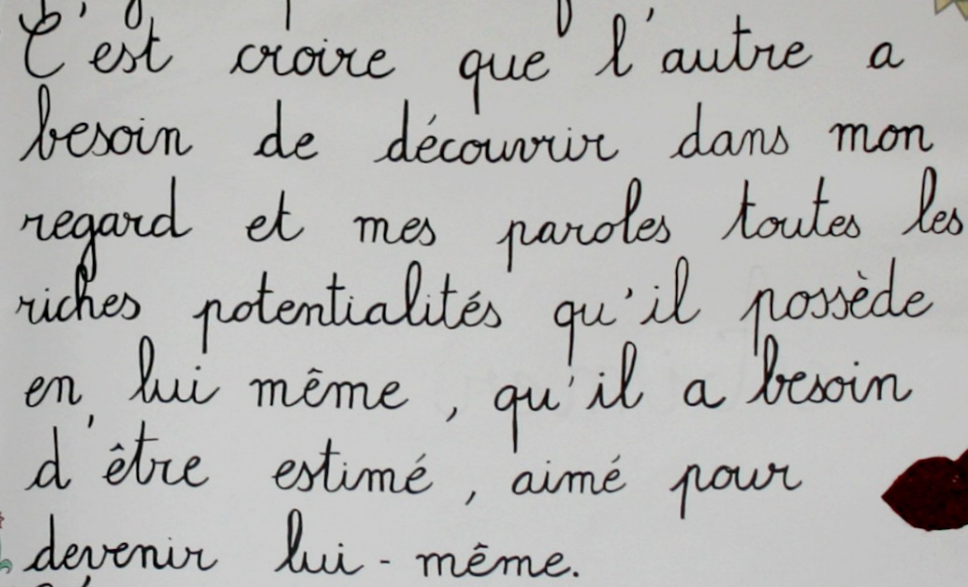 C'est croire que l'autre a
besoin de découvrir dans mon
regard et mes paroles toutes les
riches potentialités qu'il possède
en lui même, qu'il a besoin
d'être estimé, aimé pour
devenir lui-même.